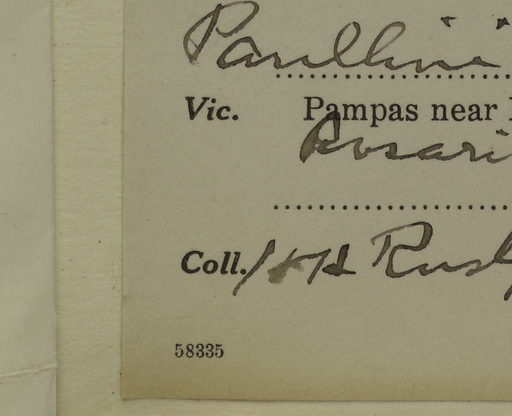 Paullini
Vic. Pampas near
Rosari
Coll. H H Rusby
58335